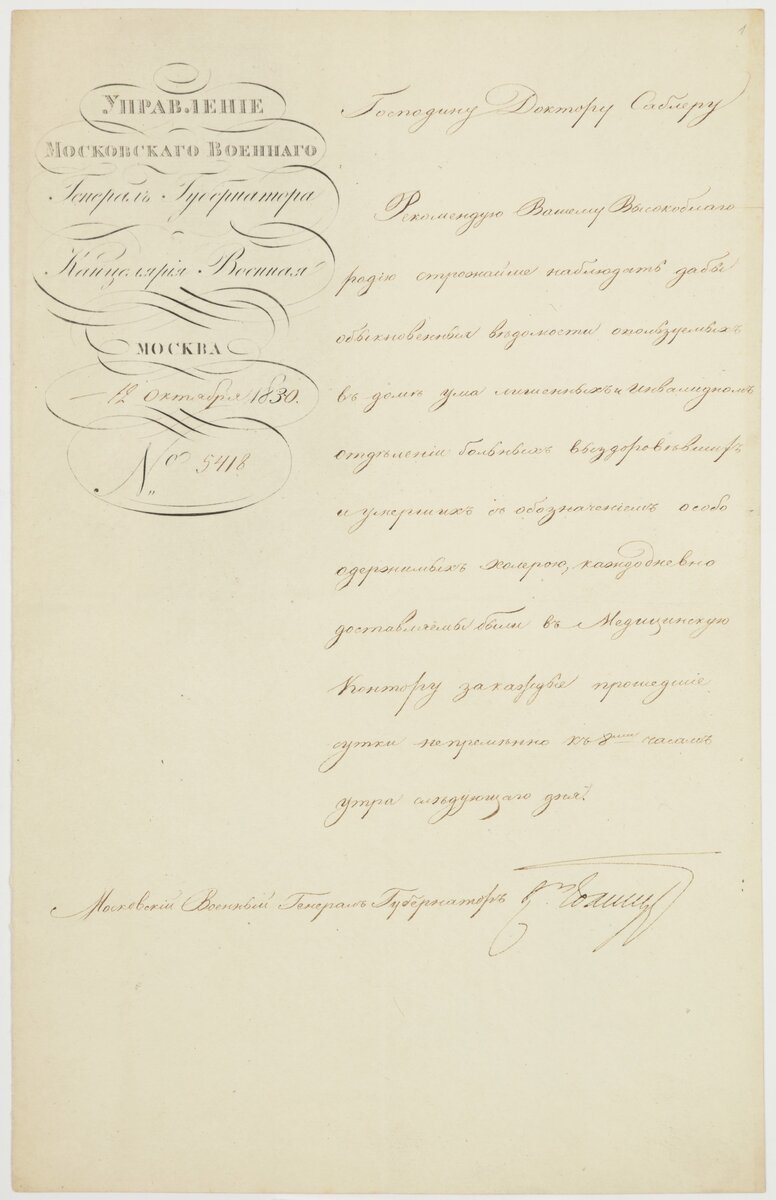 1
Управленіе
Московскаго Военнаго
Генералъ Губернатора
Канцелярія Военная
Москва
12 Октября 1830.
№ 5418
Господину Доктору Саблеру
Рекомендую Вашему Высокоблаго
родію строжайше наблюдать дабы
обыкновенныя вѣдомости опользуемыхъ
въ домѣ ума лишенныхъ и Инвалидномъ
отдѣленіи больныхъ выздоровѣвшихъ
и умершихъ съ обозначеніемъ особо
одержимыхъ холерою, каждодневно
доставляемы были въ Медицинскую
Контору за каждые прошедшіе
сутки непремѣнно къ 8ми часамъ
утра слѣдующаго дня.
Московскій Военный Генералъ Губернаторъ